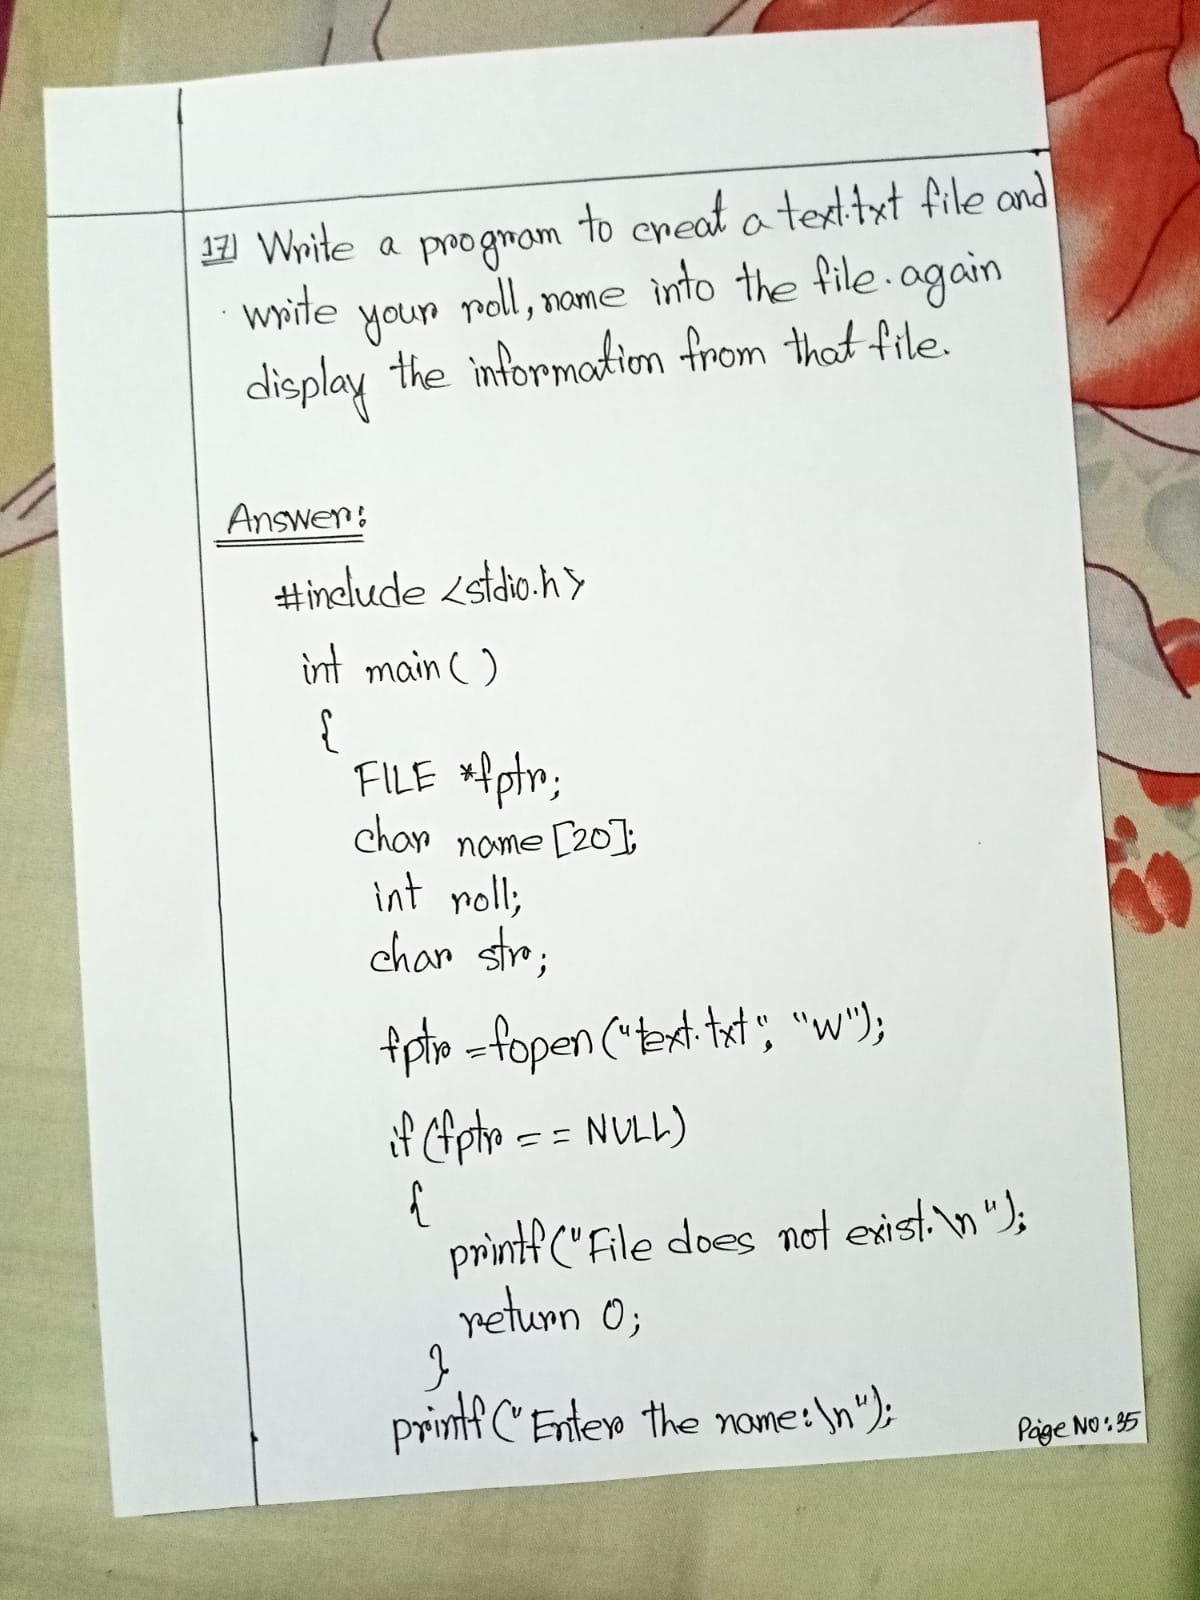 17) Write a program to creat a text.txt file and
write your roll, name into the file. again
display the information from that file.
Answer:
#include <stdio.h>
int main( )
{
FILE *fptr;
char name [20];
int roll;
char str;
fptr = fopen ("text.txt", "w");
if (fptr == NULL)
{
printf ("File does not exist.\n");
return 0;
}
printf ("Enter the name:\n");
Page NO: 35